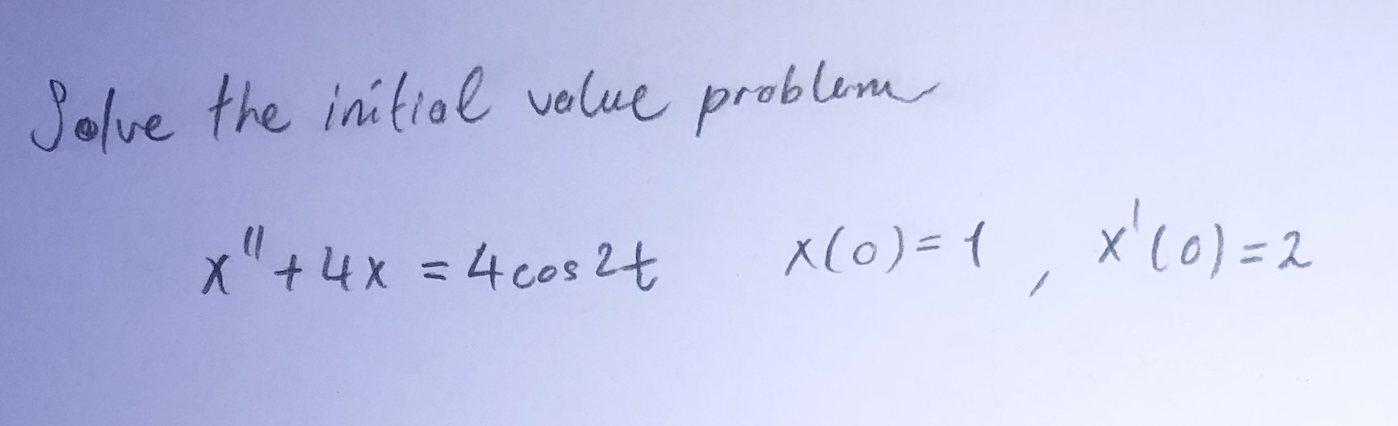 Solve the initial value problem
x'' + 4x = 4 cos 2t x(0) = 1 , x'(0) = 2